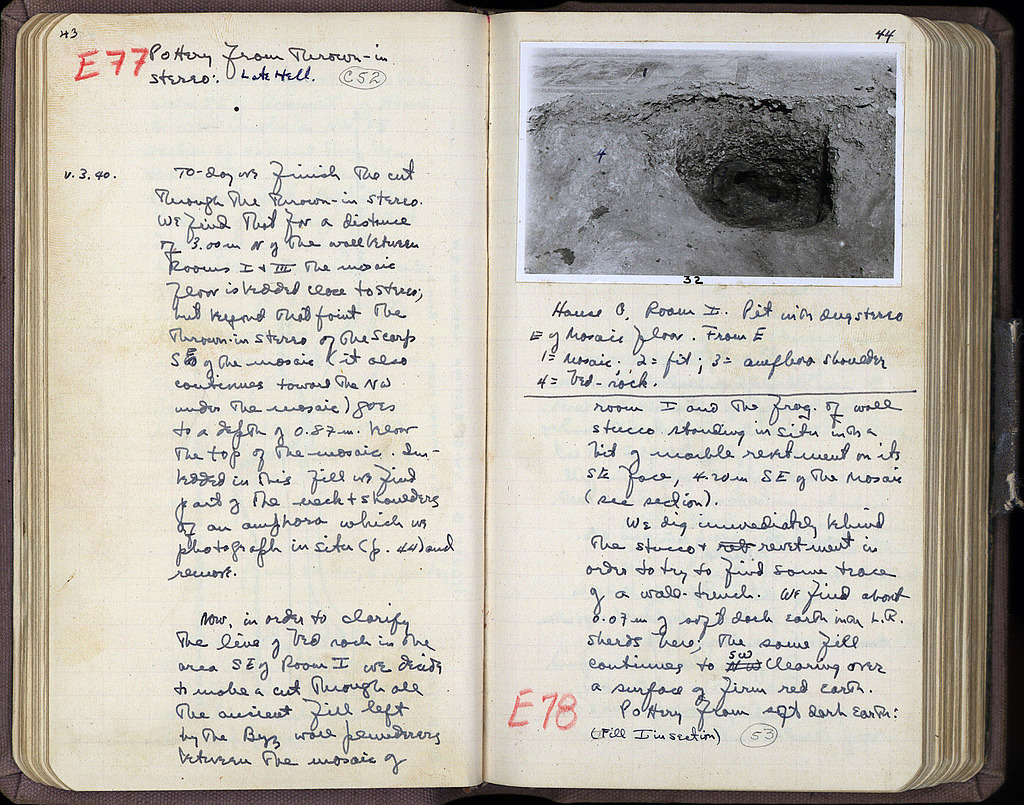 43
E77 Pottery from Thrown-in
stereo: Late Hell. C52
v.3.40. To-day we finish the cut
through the thrown-in stereo.
We find that for a distance
of 3.00m N of the wall between
Rooms I + III the mosaic
floor is bedded close to stereo;
but beyond that point the
thrown-in stereo of the scarp
SE of the mosaic (it also
continues toward the NW
under the mosaic) goes
to a depth of 0.87m. below
the top of the mosaic. Im-
bedded in this fill we find
part of the neck + shoulders
of an amphora which we
photograph in situ (p. 44) and
remove.
Now, in order to clarify
the line of bed rock in the
area SE of Room I we decide
to make a cut through all
the ancient fill left
by the Byz wall plunderers
between the mosaic of
44
1
4
32
House C, Room I. Pit in dug stereo
E of Mosaic floor. From E
1= mosaic; 2= pit; 3= amphora shoulder
4= bed-rock.
room I and the frag. of wall
stucco standing in situ with a
bit of marble revetment on its
SE face, 4.20m SE of the mosaic
(see section).
We dig immediately behind
the stucco + revetment in
order to try to find some trace
of a wall-trench. We find about
0.07m of soft dark earth with L.R.
sherds here; the same fill
continues to SW clearing over
a surface of firm red earth.
E78 Pottery from soft dark earth:
(Fill I in section) 53